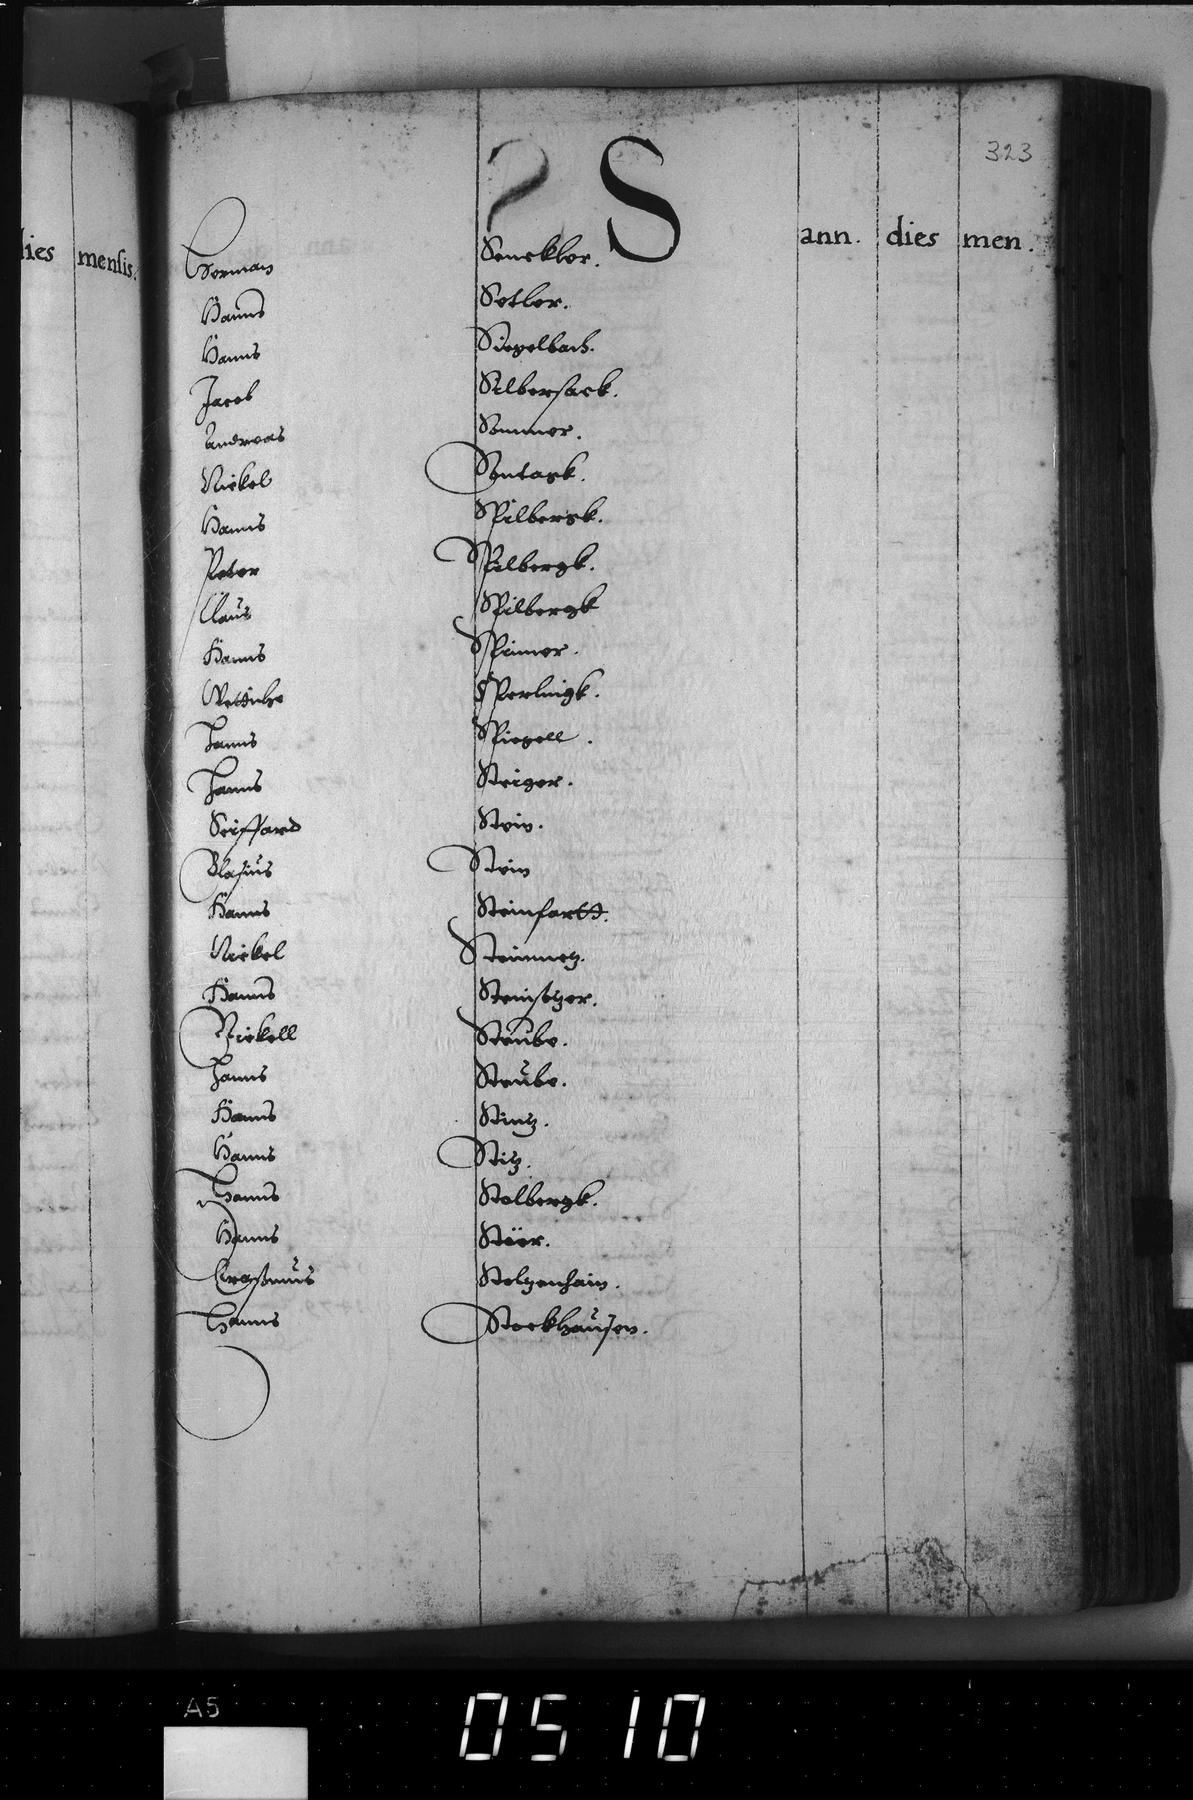 323
S
dies mensis.
ann. dies men.
Herman Senckler.
Hanns Setler.
Hanns Siegelbach.
Jacob Silbersack.
Andreas Sommer.
Nickel Sontagk.
Hanns Spilbergk.
Peter Spilbergk.
Claus Spilbergk
Hanns Spinner.
Sperlingk.
Hanns Spiegell.
Hanns Steiger.
Seiffard Stein.
Blasius Stein
Hanns Steinfartt.
Nickel Steinmetz.
Hanns
Nickell Steube.
Hanns Steube.
Hanns Stintz.
Hanns Stitz.
Hanns Stolbergk.
Hanns Stöer.
Eraßmus Stolzenhain.
Hanns Stockhausen.
A5
0510